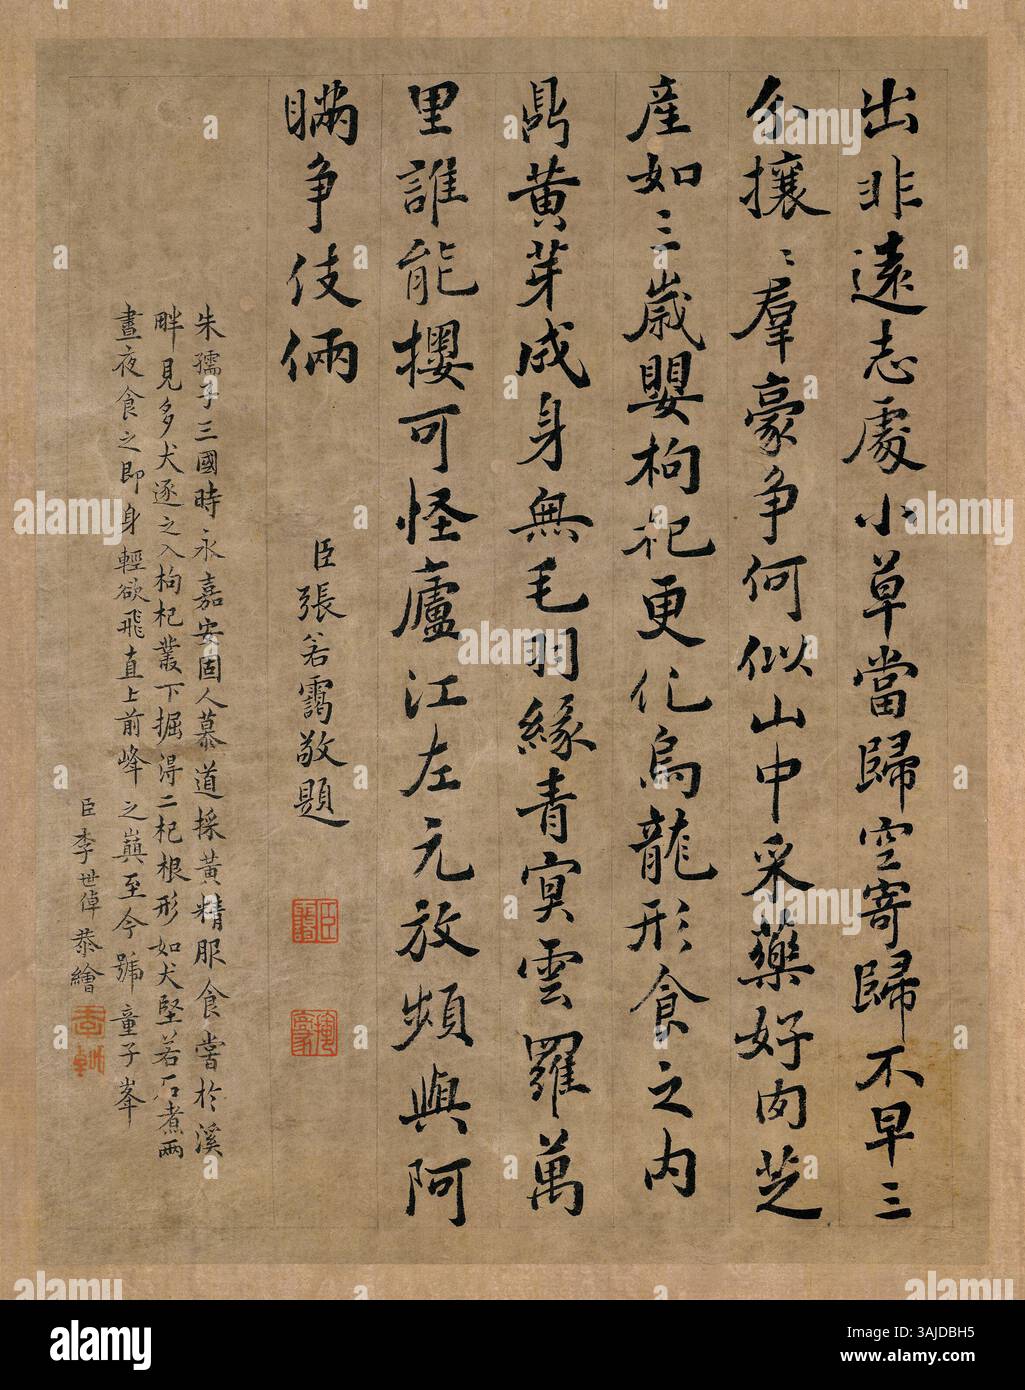 出非遠志處小草當歸空寄歸不早三
分攘〻羣豪争何似山中采藥好肉芝
産如三歲嬰枸杞更化烏龍形食之內
鼎黃芽成身無毛羽緣青冥雲羅萬
里誰能攖可怪廬江左元放頻與阿
瞞争伎倆
臣張若靄敬題
朱孺子三國時永嘉安固人慕道採黃精服食嘗於溪
畔見多犬逐之入枸杞叢下掘得二杞根形如犬堅若石煮兩
晝夜食之即身輕欲飛直上前峰之巔至今號童子峯
臣李世倬恭繪
alamy
Image ID: 3AJDBH5
www.alamy.com